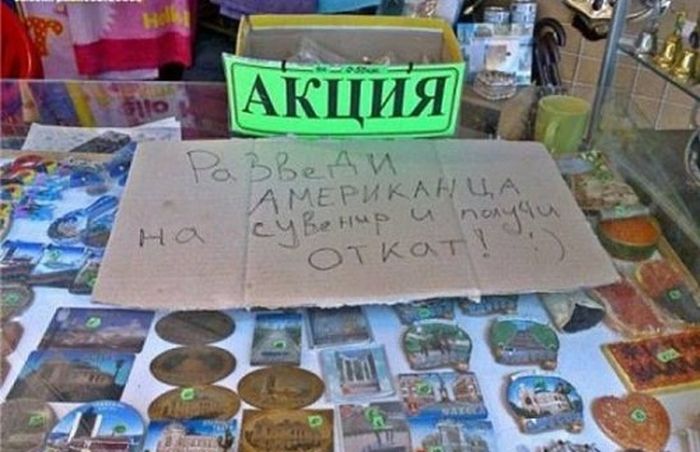 АКЦИЯ
РАЗВЕДИ
АМЕРИКАНЦА
на сувенир и получи
ОТКАТ! :)